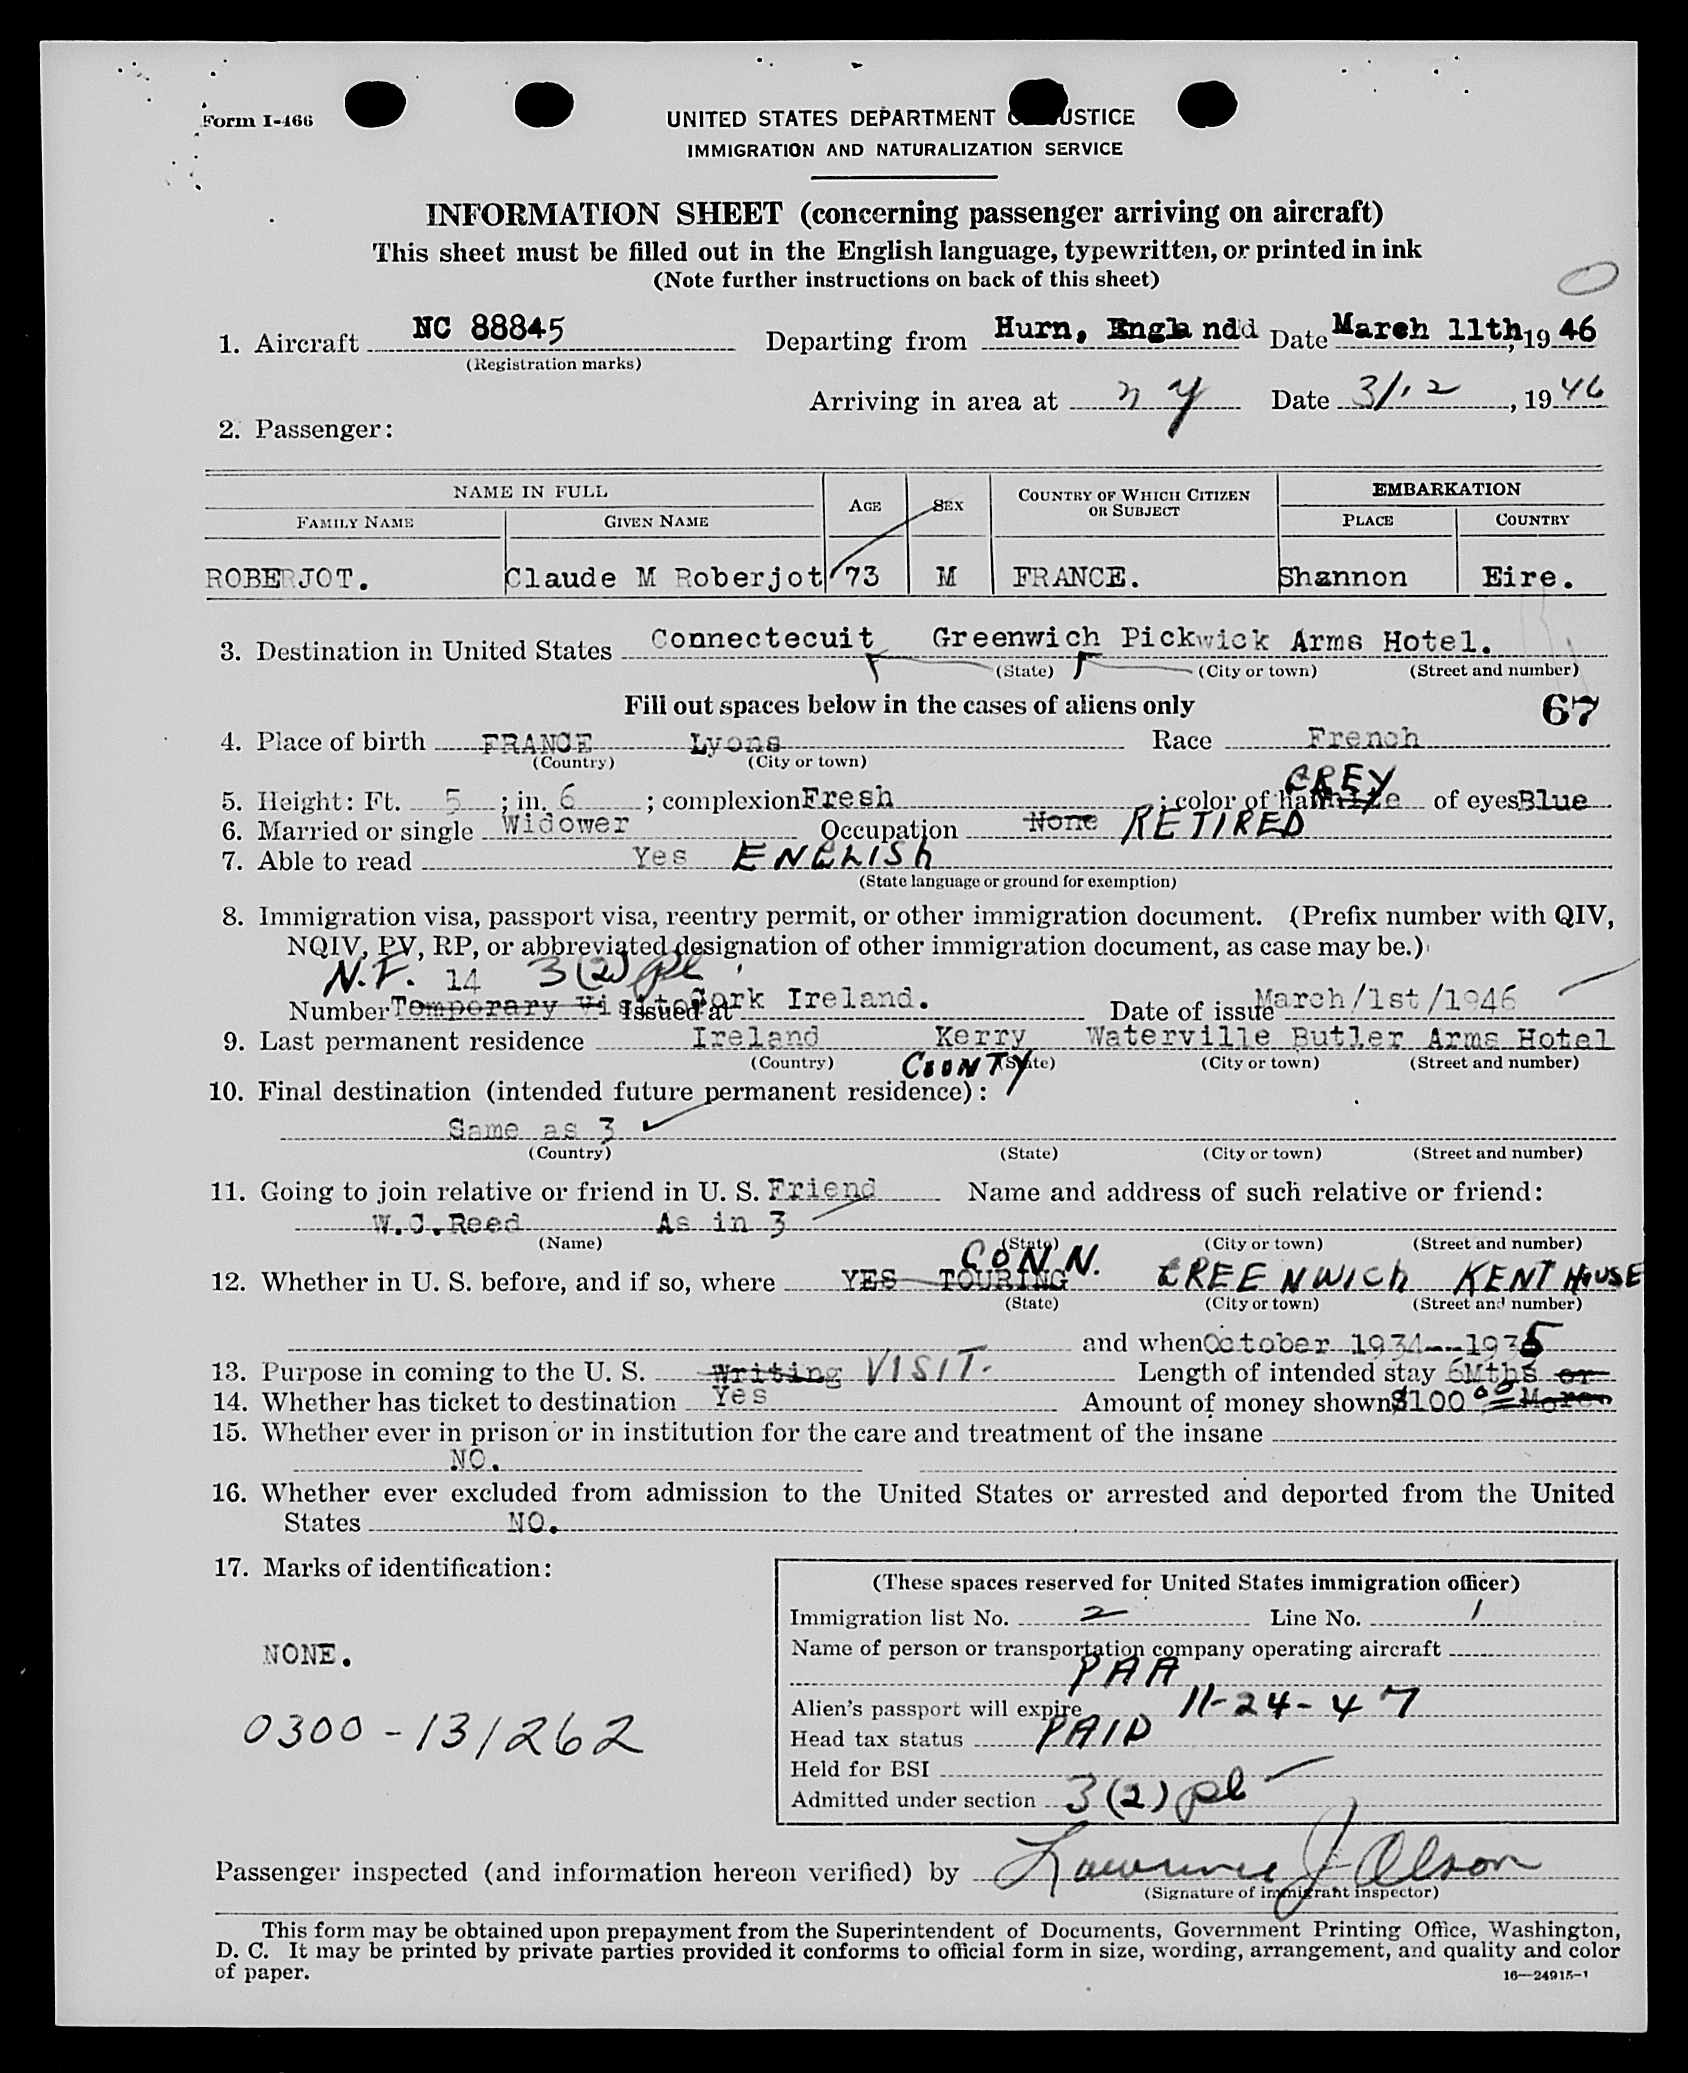 Form I-466
UNITED STATES DEPARTMENT USTICE
IMMIGRATION AND NATURALIZATION SERVICE
INFORMATION SHEET (concerning passenger arriving on aircraft)
This sheet must be filled out in the English language, typewritten, or printed in ink
(Note further instructions on back of this sheet)
1. Aircraft NC 88845 Departing from Hurn, Date March 11th, 1946
(Registration marks)
Arriving in area at N Y Date 3/12, 1946
2. Passenger:
NAME IN FULL AGE SEX COUNTRY OF WHICH CITIZEN OR SUBJECT EMBARKATION
FAMILY NAME GIVEN NAME PLACE COUNTRY
ROBERJOT. Claude M Roberjot 73 M FRANCE. Shannon Eire.
3. Destination in United States Connectecuit Greenwich Pickwick Arms Hotel.
(State) (City or town) (Street and number)
Fill out spaces below in the cases of aliens only 67
4. Place of birth FRANCE Lyons Race French
(Country) (City or town)
GREY
5. Height: Ft. 5; in. 6; complexion Fresh; color of hair of eyes Blue
6. Married or single Widower Occupation None RETIRED
7. Able to read Yes ENGLISH
(State language or ground for exemption)
8. Immigration visa, passport visa, reentry permit, or other immigration document. (Prefix number with QIV,
NQIV, PV, RP, or abbreviated designation of other immigration document, as case may be.)
N.F. 14 3(2)
Number Temporary Issued at Cork Ireland. Date of issue March/1st/1946
9. Last permanent residence Ireland Kerry Waterville Butler Arms Hotel
(Country) COUNTY (State) (City or town) (Street and number)
10. Final destination (intended future permanent residence):
Same as 3
(Country) (State) (City or town) (Street and number)
11. Going to join relative or friend in U. S. Friend Name and address of such relative or friend:
W.C.Reed As in 3
(Name) (State) (City or town) (Street and number)
CONN.
12. Whether in U. S. before, and if so, where YES TOURING GREENWICH KENT HOUSE
(State) (City or town) (Street and number)
and when October 1934--1935
13. Purpose in coming to the U. S. Writing VISIT. Length of intended stay 6Mths or
14. Whether has ticket to destination Yes Amount of money shown $100 00 More
15. Whether ever in prison or in institution for the care and treatment of the insane
NO.
16. Whether ever excluded from admission to the United States or arrested and deported from the United
States NO.
17. Marks of identification:
NONE.
0300-131262
(These spaces reserved for United States immigration officer)
Immigration list No. 2 Line No. 1
Name of person or transportation company operating aircraft
PAA
Alien's passport will expire 11-24-47
Head tax status PAID
Held for BSI
Admitted under section 3(2)
Passenger inspected (and information hereon verified) by Lawrence J Olson
(Signature of immigrant inspector)
This form may be obtained upon prepayment from the Superintendent of Documents, Government Printing Office, Washington,
D. C. It may be printed by private parties provided it conforms to official form in size, wording, arrangement, and quality and color
of paper. 16—24915-1